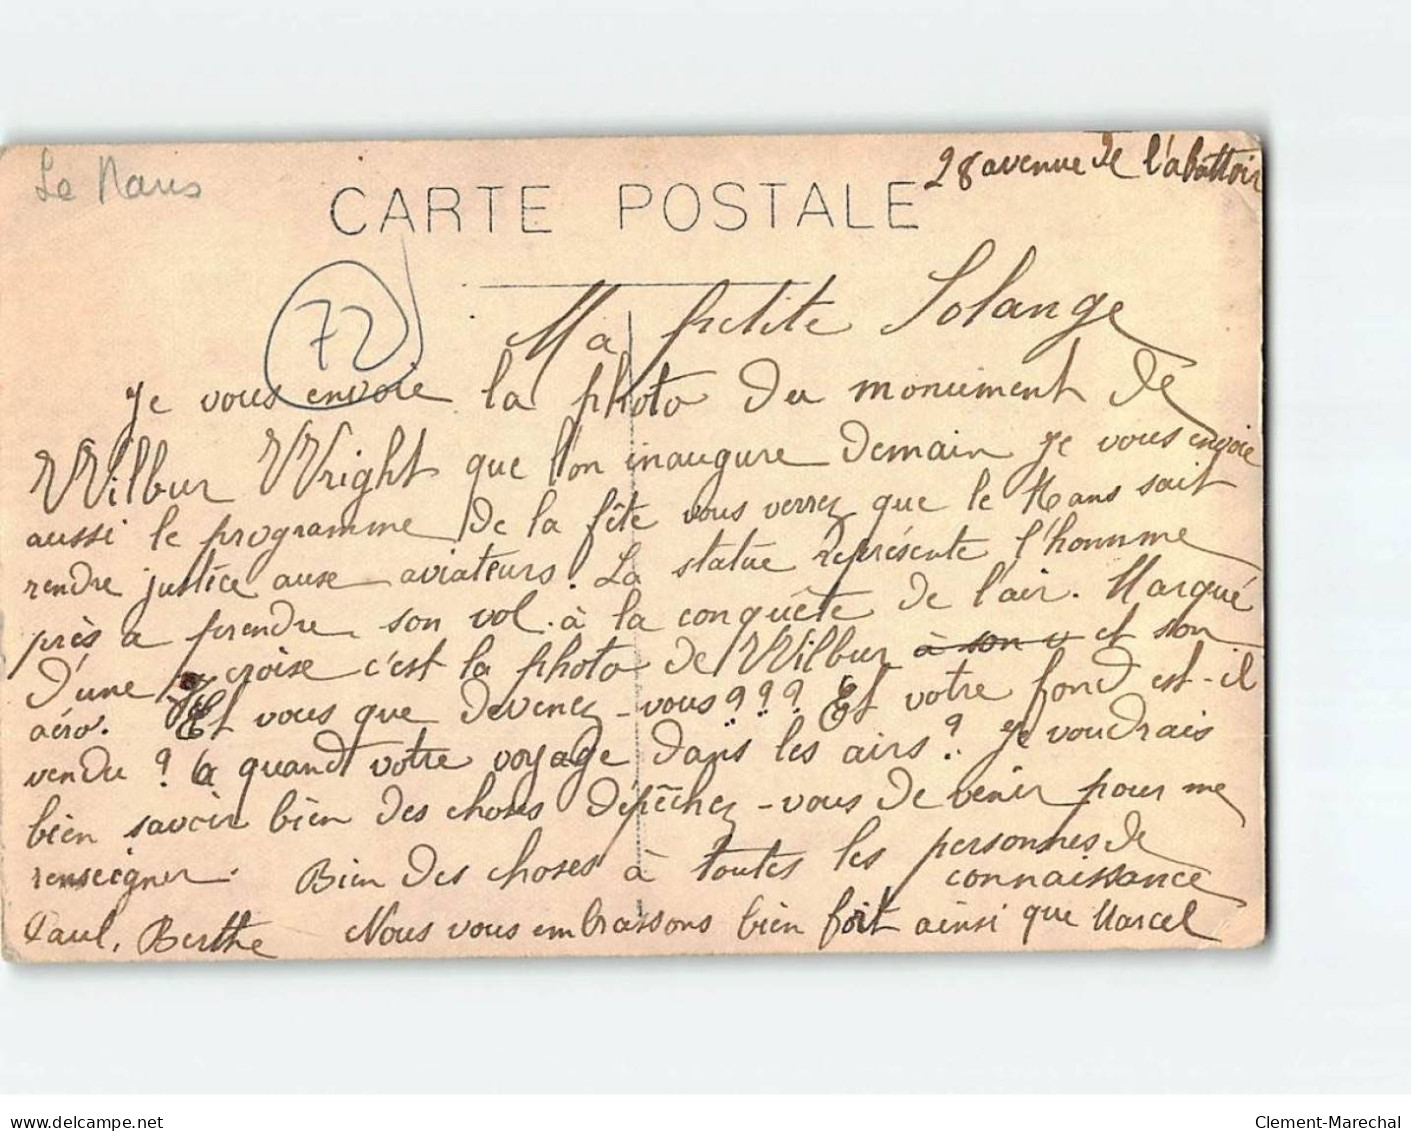 Le Mans
28 avenue de l'abattoir
CARTE POSTALE
72
Ma petite Solange
Je vous envoie la photo du monument de
Wilbur Wright que l'on inaugure demain je vous envoie
aussi le programme de la fête vous verrez que le Mans sait
rendre justice aux aviateurs. La statue représente l'homme
près a prendre son vol. à la conquête de l'air. Marqué
d'une croise c'est la photo de Wilbur à son v et son
aéro. Et vous que devenez-vous??? Et votre fond est-il
vendu? a quand votre voyage dans les airs? Je voudrais
bien savoir bien des choses dépêchez-vous de venir pour me
renseigner. Bien des choses à toutes les personnes de
connaissance
Paul, Berthe Nous vous embrassons bien fort ainsi que Marcel
www.delcampe.net
Clement-Marechal